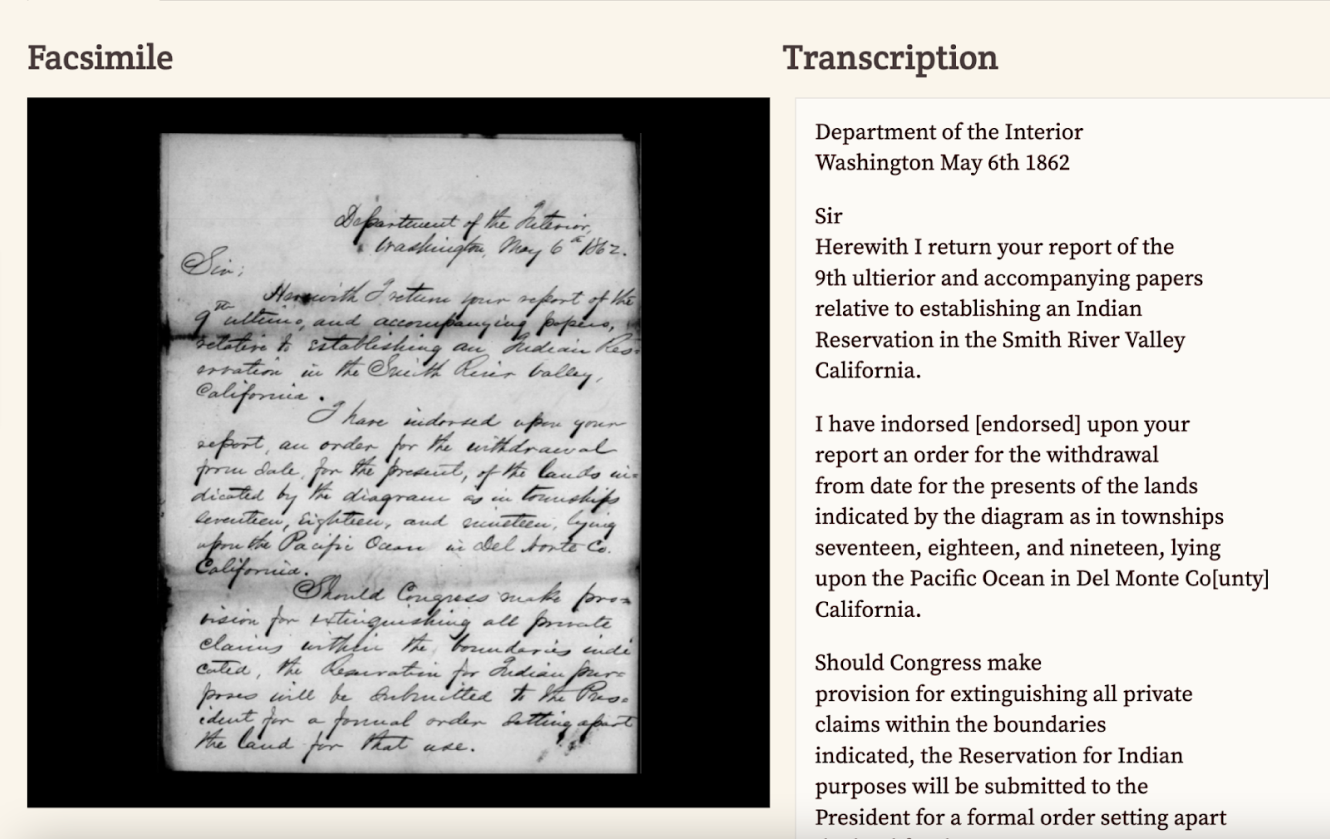 Facsimile
Department of the Interior,
Washington, May 6th 1862.
Sir;
Herewith I return your report of the
9th ultimo, and accompanying papers,
relative to establishing an Indian Res-
ervation in the Smith River Valley,
California.
I have indorsed upon your
report, an order for the withdrawal
from date, for the present, of the lands in-
dicated by the diagram as in townships
seventeen, eighteen, and nineteen, lying
upon the Pacific Ocean in Del Norte Co.
California.
Should Congress make pro-
vision for extinguishing all private
claims within the boundaries indi
cated, the Reservation for Indian pur-
poses will be submitted to the Pres-
ident for a formal order setting apart
the land for that use.
Transcription
Department of the Interior
Washington May 6th 1862
Sir
Herewith I return your report of the
9th ultierior and accompanying papers
relative to establishing an Indian
Reservation in the Smith River Valley
California.
I have indorsed [endorsed] upon your
report an order for the withdrawal
from date for the presents of the lands
indicated by the diagram as in townships
seventeen, eighteen, and nineteen, lying
upon the Pacific Ocean in Del Monte Co[unty]
California.
Should Congress make
provision for extinguishing all private
claims within the boundaries
indicated, the Reservation for Indian
purposes will be submitted to the
President for a formal order setting apart